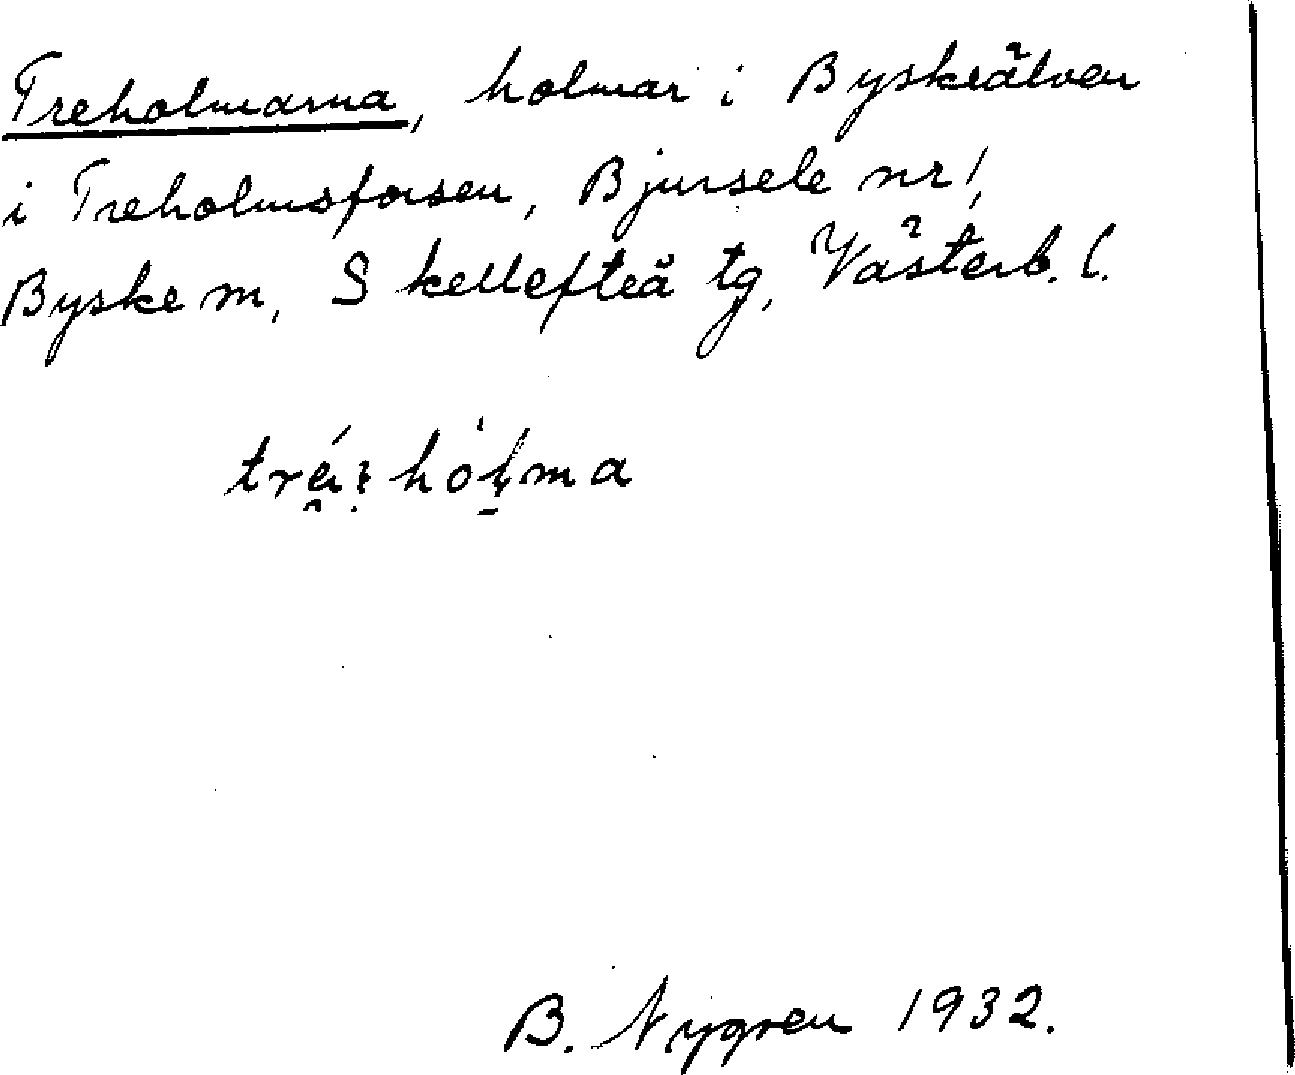 Treholmarna, holmar i Byskeälven
i Treholmsforsen, Bjursele nr 1,
Byske sn, Skellefteå tg, Västerb. l.
B. Nygren 1932.